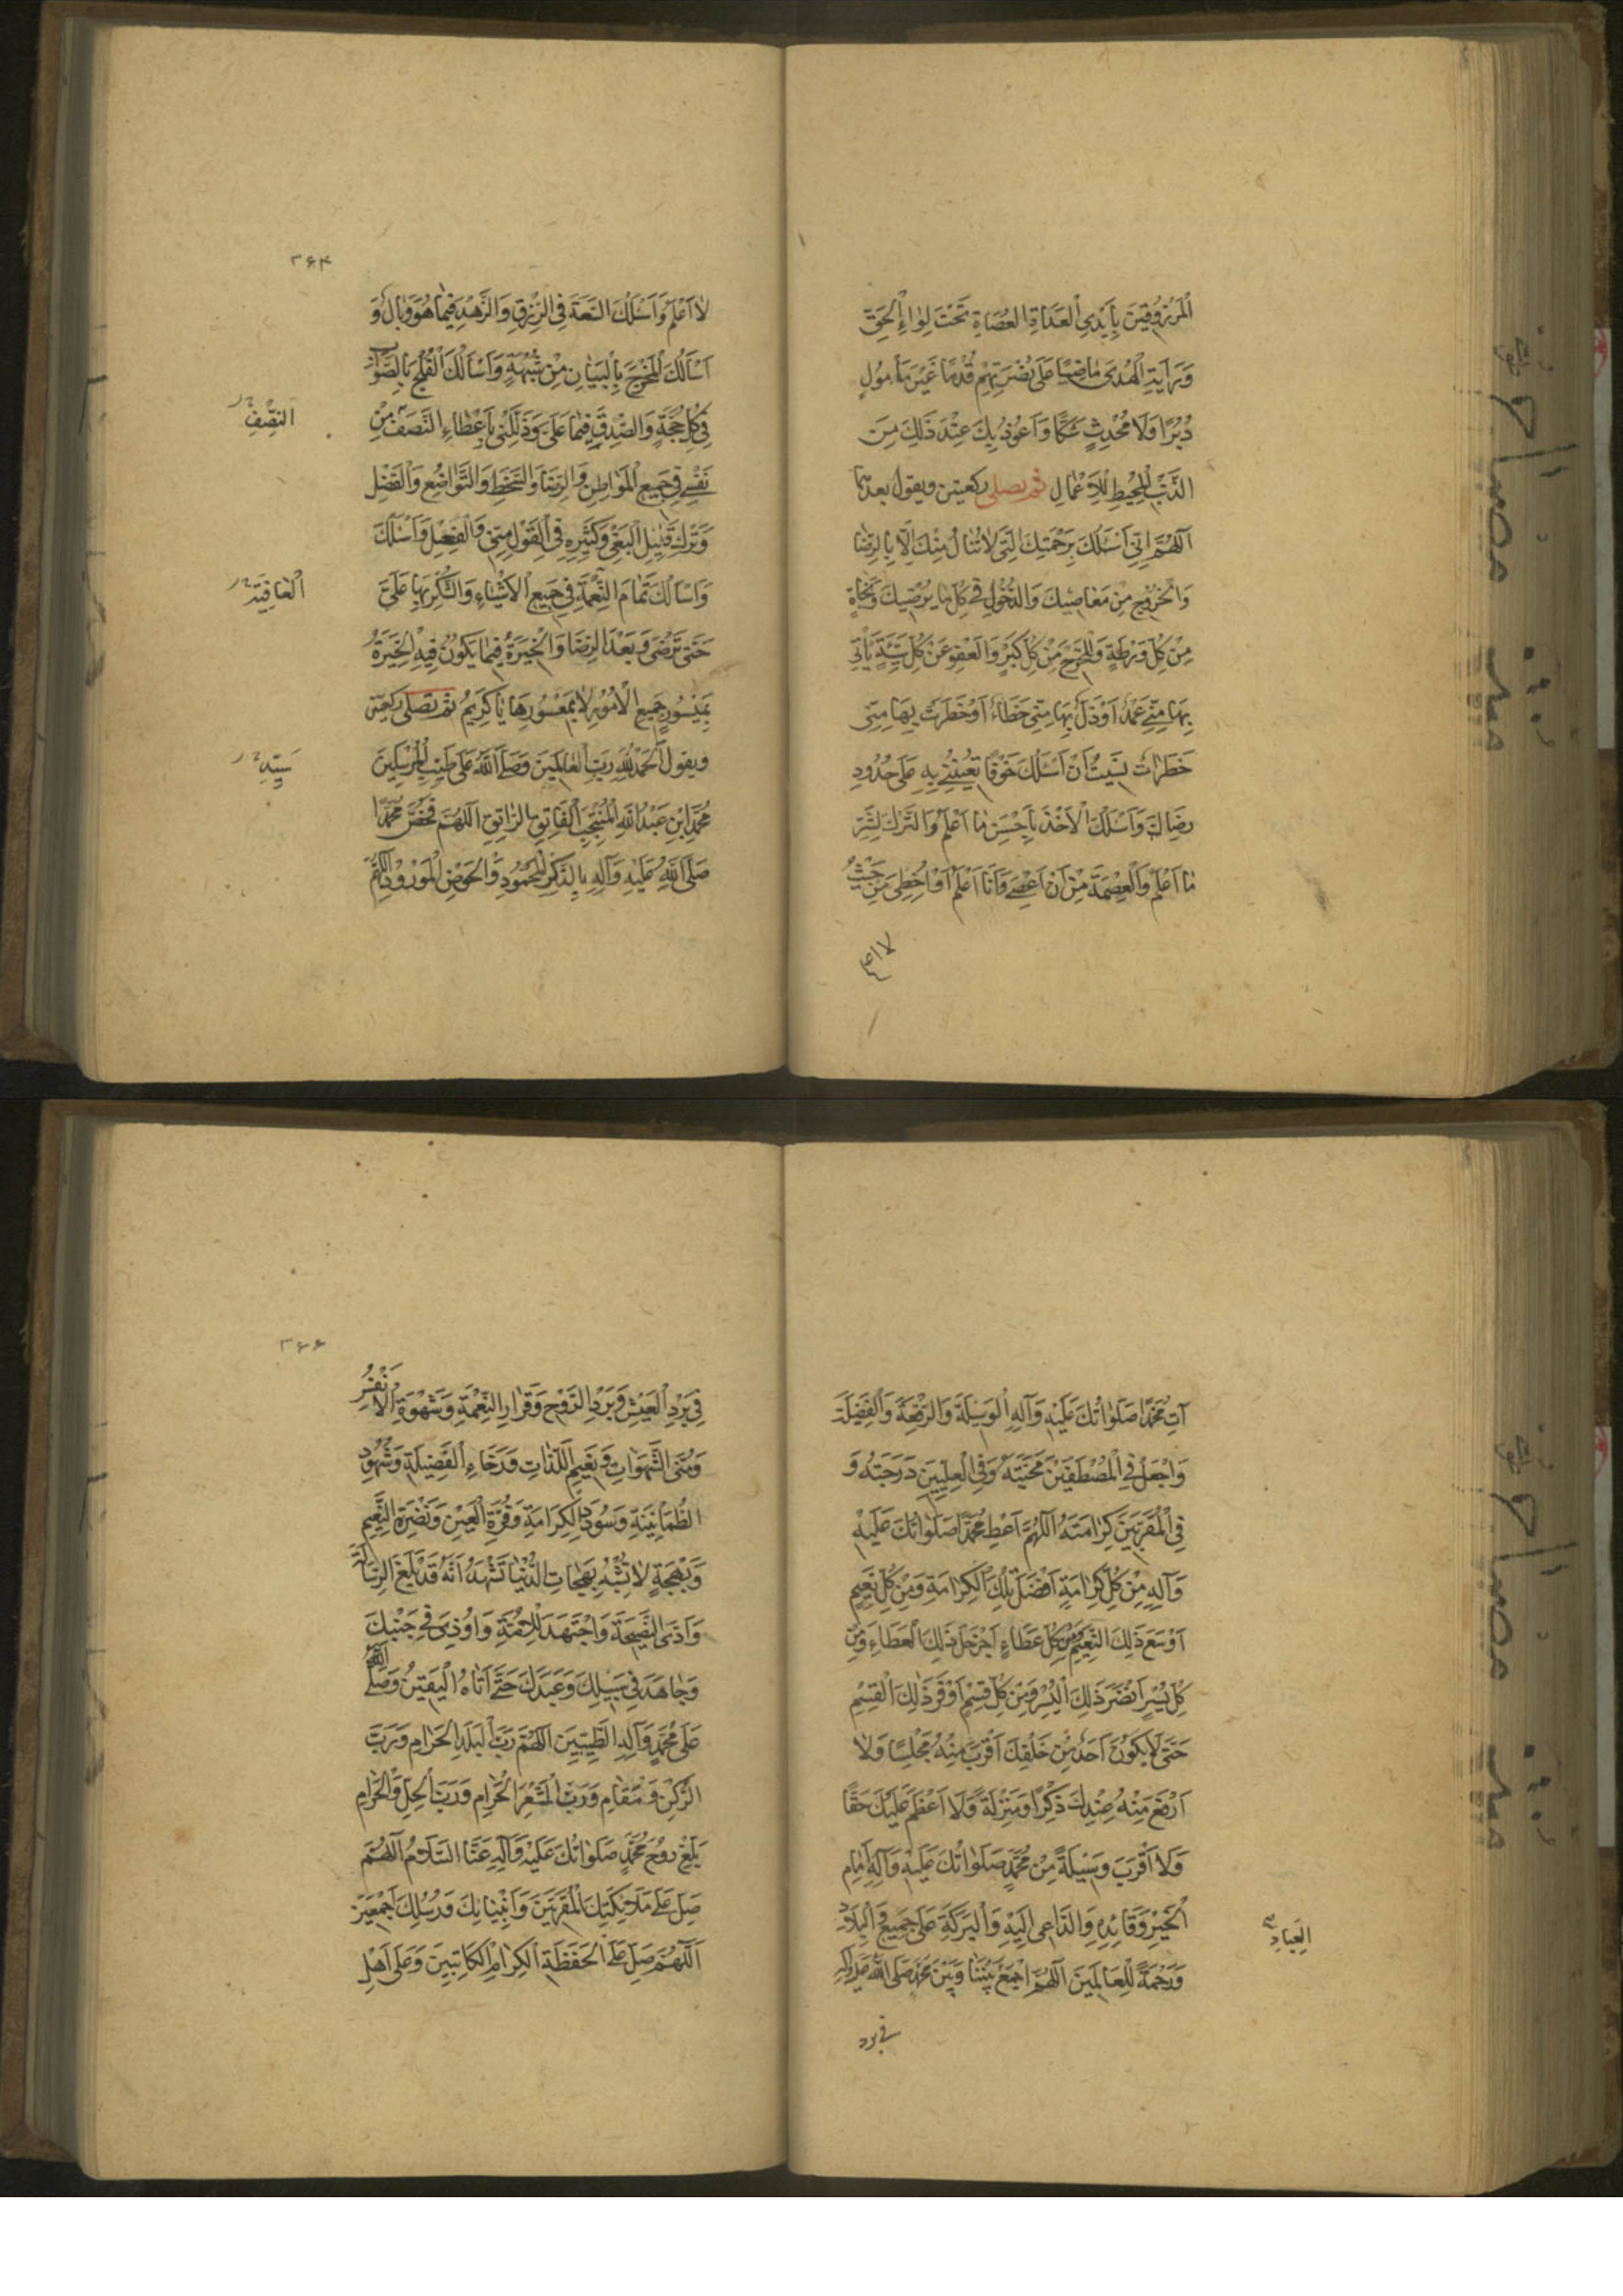 الْمَرْزُوقِينَ بِأَيْدِي الْعَدَاةِ الْعُصَاةِ تَحْتَ لِوَاءِ الْحَقِّ
وَرَايَةِ الْهُدَى مَاضِيًا عَلَى نُصْرَتِهِمْ قُدُمًا غَيْرَ مُوَلٍّ
دُبُرًا وَلَا مُحْدِثٍ شَكًّا وَاَعُوذُ بِكَ عِنْدَ ذَلِكَ مِنَ
الذَّنْبِ الْمُحِيطِ لِلْاَعْمَالِ ثم يصلي ركعتين ويقول بعدهما
اَللّهُمَّ اِنِّي اَسْئَلُكَ بِرَحْمَتِكَ الَّتِي لَا تُنَالُ مِنْكَ اِلَّا بِالرِّضَا
وَالْخُرُوجِ مِنْ مَعَاصِيكَ وَالدُّخُولِ فِي كُلِّ مَا يُرْضِيكَ وَنَجَاةٍ
مِنْ كُلِّ وَرْطَةٍ وَالْمَخْرَجِ مِنْ كُلِّ كَبِيرٍ وَالْعَفْوِ عَنْ كُلِّ سَيِّئَةٍ يَأْتِي
بِهَا مِنِّي عَمْدٌ اَوْ زَلَّ بِهَا مِنِّي خَطَاءٌ اَوْ خَطَرَتْ بِهَا مِنِّي
خَطَرَاتُ نَسِيتُ اَنْ اَسْئَلَكَ خَوْفًا تُعِينُنِي بِهِ عَلَى حُدُودِ
رِضَاكَ وَاَسْئَلُكَ الْاَخْذَ بِاَحْسَنِ مَا اَعْلَمُ وَالتَّرْكَ لِشَرِّ
مَا اَعْلَمُ وَالْعِصْمَةَ مِنْ اَنْ اَعْصِيَ وَاَنَا اَعْلَمُ اَوْ اُخْطِئَ مِنْ حَيْثُ
لا اعلم
۳۶۴
لَا اَعْلَمُ وَاَسْئَلُكَ السَّعَةَ فِي الرِّزْقِ وَالزُّهْدَ فِيمَا هُوَ وَبَالٌ وَ
اَسْأَلُكَ الْمَخْرَجَ بِالْبَيَانِ مِنْ شُبْهَةٍ وَاَسْأَلُكَ الْفَلْجَ بِالصَّوَابِ
فِي كُلِّ حُجَّةٍ وَالصِّدْقَ فِيمَا عَلَيَّ وَذَلِّلْنِي بِاِعْطَاءِ النَّصَفِ مِنْ
النِّصْفِ
نَفْسِي فِي جَمِيعِ الْمَوَاطِنِ وَالرِّضَا وَالسَّخَطِ وَالتَّوَاضُعِ وَالْفَضْلِ
وَتَرْكِ قَلِيلِ الْبَغْيِ وَكَثِيرِهِ فِي الْقَوْلِ مِنِّي وَالْفِعْلِ وَاَسْئَلُكَ
الْعَافِيَةَ
وَاَسْأَلُكَ تَمَامَ النِّعْمَةِ فِي جَمِيعِ الْاَشْيَاءِ وَالشُّكْرِ بِهَا عَلَيَّ
حَتَّى تَرْضَى وَبَعْدَ الرِّضَا وَالْخِيَرَةَ فِيمَا يَكُونُ فِيهِ الْخِيَرَةُ
بِمَيْسُورِ جَمِيعِ الْاُمُورِ لَا بِمَعْسُورِهَا يَا كَرِيمُ ثم تصلي ركعتين
ويقول اَلْحَمْدُ لِلّهِ رَبِّ الْعَالَمِينَ وَصَلَّى اللّهُ عَلَى طَيِّبِ الْمُرْسَلِينَ
سَيِّدِ
مُحَمَّدِ ابْنِ عَبْدِ اللّهِ الْمُنْتَجَبِ الْفَاتِقِ الرَّاتِقِ اَللّهُمَّ فَخُصَّ مُحَمَّدًا
صَلَّى اللّهُ عَلَيْهِ وَآلِهِ بِالذِّكْرِ الْمَحْمُودِ وَالْحَوْضِ الْمَوْرُودِ اَللّهُمَّ
آتِ مُحَمَّدًا صَلَوَاتُكَ عَلَيْهِ وَآلِهِ الْوَسِيلَةَ وَالرِّفْعَةَ وَالْفَضِيلَةَ
وَاجْعَلْ فِي الْمُصْطَفَيْنَ مَحَبَّتَهُ وَفِي الْعِلِّيِّينَ دَرَجَتَهُ وَ
فِي الْمُقَرَّبِينَ كَرَامَتَهُ اَللّهُمَّ اَعْطِ مُحَمَّدًا صَلَوَاتُكَ عَلَيْهِ
وَآلِهِ مِنْ كُلِّ كَرَامَةٍ اَفْضَلَ تِلْكَ الْكَرَامَةِ وَمِنْ كُلِّ نَعِيمٍ
اَوْسَعَ ذَلِكَ النَّعِيمِ وَمِنْ كُلِّ عَطَاءٍ اَجْزَلَ ذَلِكَ الْعَطَاءِ وَمِنْ
كُلِّ يُسْرٍ اَنْضَرَ ذَلِكَ الْيُسْرِ وَمِنْ كُلِّ قِسْمٍ اَوْفَرَ ذَلِكَ الْقِسْمِ
حَتَّى لَا يَكُونَ اَحَدٌ مِنْ خَلْقِكَ اَقْرَبَ مِنْهُ مَجْلِسًا وَلَا
اَرْفَعَ مِنْهُ عِنْدَكَ ذِكْرًا وَمَنْزِلَةً وَلَا اَعْظَمَ عَلَيْكَ حَقًّا
وَلَا اَقْرَبَ وَسِيلَةً مِنْ مُحَمَّدٍ صَلَوَاتُكَ عَلَيْهِ وَآلِهِ اِمَامِ
الْخَيْرِ وَقَائِدِهِ وَالدَّاعِي اِلَيْهِ وَالْبَرَكَةِ عَلَى جَمِيعِ وَالْبِلَادِ
الْعِبَادِ
وَرَحْمَةً لِلْعَالَمِينَ اَللّهُمَّ اجْمَعْ بَيْنَنَا وَبَيْنَ مُحَمَّدٍ صَلَّى اللّهُ عَلَيْهِ وَآلِهِ
في برد
۳۶۶
فِي بَرْدِ الْعَيْشِ وَبَرْدِ الرَّوْحِ وَقَرَارِ النِّعْمَةِ وَشَهْوَةِ الْاَنْفُسِ
وَمُنَى الشَّهَوَاتِ وَنَعِيمِ اللَّذَّاتِ وَرَخَاءِ الْفَضِيلَةِ وَشُهُودِ
الطُّمَأْنِينَةِ وَسُودَدِ الْكَرَامَةِ وَقُرَّةِ الْعَيْنِ وَنَضْرَةِ النَّعِيمِ
وَبَهْجَةٍ لَا تُشْبِهُ بَهَجَاتِ الدُّنْيَا نَشْهَدُ اَنَّهُ قَدْ بَلَّغَ الرِّسَالَةَ
وَاَدَّى النَّصِيحَةَ وَاجْتَهَدَ لِلْاُمَّةِ وَاُوذِيَ فِي جَنْبِكَ
وَجَاهَدَ فِي سَبِيلِكَ وَعَبَدَكَ حَتَّى اَتَاهُ الْيَقِينُ وَصَلَّى اللّهُ
عَلَى مُحَمَّدٍ وَآلِهِ الطَّيِّبِينَ اَللّهُمَّ رَبَّ الْبَلَدِ الْحَرَامِ وَرَبَّ
الرُّكْنِ وَمَقَامِ وَرَبَّ الْمَشْعَرِ الْحَرَامِ وَرَبَّ الْحِلِّ وَالْحَرَامِ
بَلِّغْ رُوحَ مُحَمَّدٍ صَلَوَاتُكَ عَلَيْهِ وَآلِهِ عَنَّا السَّلَامَ اَللّهُمَّ
صَلِّ عَلَى مَلَائِكَتِكَ الْمُقَرَّبِينَ وَاَنْبِيَائِكَ وَرُسُلِكَ اَجْمَعِينَ
اَللّهُمَّ صَلِّ عَلَى الْحَفَظَةِ الْكِرَامِ الْكَاتِبِينَ وَعَلَى اَهْلِ